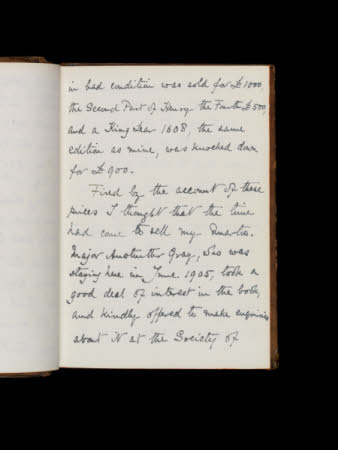 in bad condition was sold for £1000,
the Second Part of Henry the Fourth £500,
and a King Lear 1608, the same
edition as mine, was knocked down
for £900.
Fired by the account of these
prices I thought that the time
had come to sell my Quartos.
Major Anstruther Gray, who was
staying here in June 1905, took a
good deal of interest in the book,
and kindly offered to make enquiries
about it at the Society of